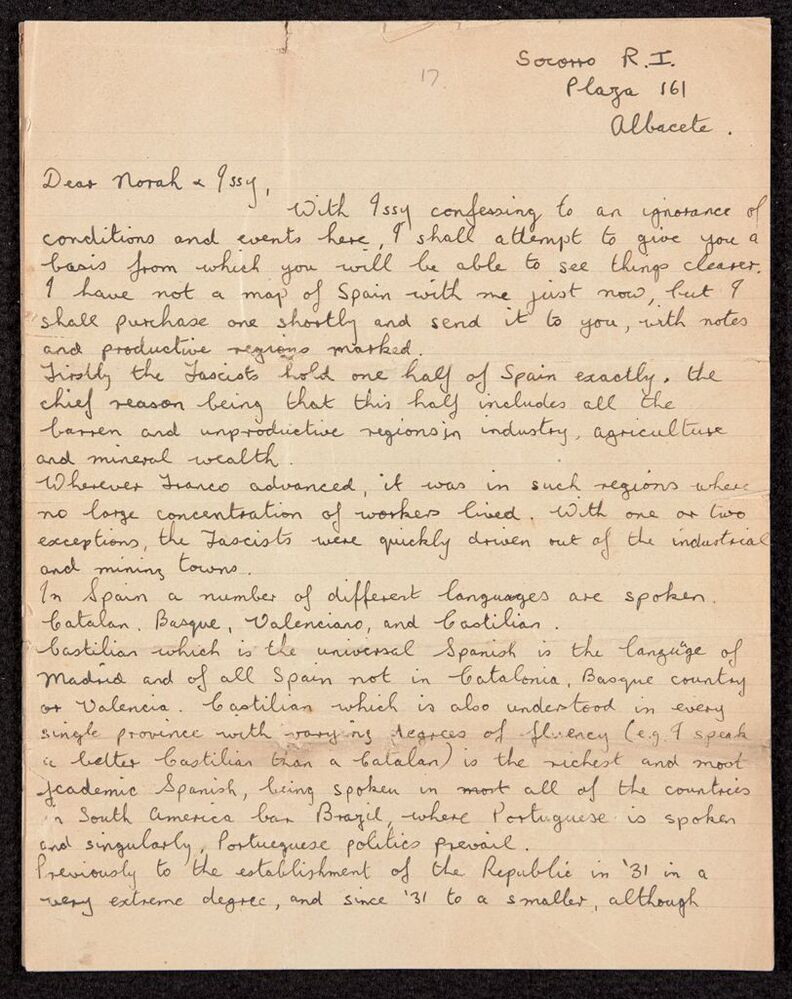 17
Socorro R.I.
Plaza 161
Albacete.
Dear Norah & Issy,
With Issy confessing to an ignorance of
conditions and events here, I shall attempt to give you a
basis from which you will be able to see things clearer.
I have not a map of Spain with me just now, but I
shall purchase one shortly and send it to you, with notes
and productive regions marked.
Firstly the Fascists hold one half of Spain exactly, the
chief reason being that this half includes all the
barren and unproductive regions in industry, agriculture
and mineral wealth.
Wherever Franco advanced, it was in such regions where
no large concentration of workers lived. With one or two
exceptions, the Fascists were quickly driven out of the industrial
and mining towns.
In Spain a number of different languages are spoken.
Catalan, Basque, Valenciano, and Castilian.
Castilian which is the universal Spanish is the language of
Madrid and of all Spain not in Catalonia, Basque country
or Valencia. Castilian which is also understood in every
single province with varying degrees of fluency (e.g. I speak
a better Castilian than a Catalan) is the richest and most
academic Spanish, being spoken in most all of the countries
in South America bar Brazil, where Portuguese is spoken
and singularly, Portueguese politics prevail.
Previously to the establishment of the Republic in '31 in a
very extreme degree, and since '31 to a smaller, although